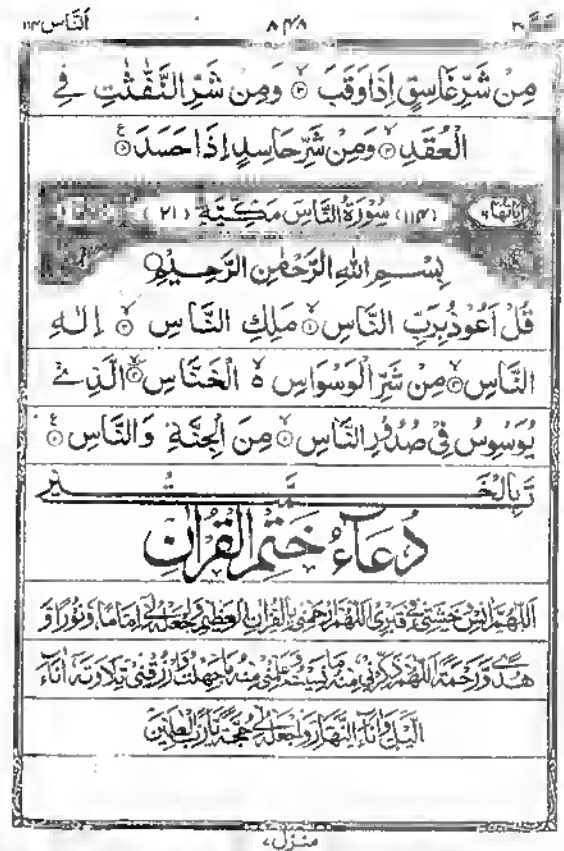 عَمَّ ٣٠ ٨٣٨ اَلنَّاس ١١٤
مِنْ شَرِّ غَاسِقٍ اِذَا وَقَبَ ۝٣ وَمِنْ شَرِّ النَّفّٰثٰتِ فِي
الْعُقَدِ ۝٤ وَمِنْ شَرِّ حَاسِدٍ اِذَا حَسَدَ ۝٥
اٰيَاتُهَا ٦ (١١٤) سُوْرَةُ النَّاسِ مَكِّيَّةٌ (٢١)
بِسْمِ اللهِ الرَّحْمٰنِ الرَّحِيْمِ
قُلْ اَعُوْذُ بِرَبِّ النَّاسِ ۝١ مَلِكِ النَّاسِ ۝٢ اِلٰهِ
النَّاسِ ۝٣ مِنْ شَرِّ الْوَسْوَاسِ ۙ الْخَنَّاسِ ۝٤ الَّذِيْ
يُوَسْوِسُ فِيْ صُدُوْرِ النَّاسِ ۝٥ مِنَ الْجِنَّةِ وَالنَّاسِ ۝٦
تَمَّتْ بِالْخَيْرِ
دُعَآءُ خَتْمِ الْقُرْاٰنِ
اَللّٰهُمَّ اٰنِسْ وَحْشَتِيْ فِيْ قَبْرِيْ اَللّٰهُمَّ ارْحَمْنِيْ بِالْقُرْاٰنِ الْعَظِيْمِ وَاجْعَلْهُ لِيْ اِمَامًا وَّنُوْرًا وَّ
هُدًى وَّرَحْمَةً اَللّٰهُمَّ ذَكِّرْنِيْ مِنْهُ مَا نَسِيْتُ وَعَلِّمْنِيْ مِنْهُ مَا جَهِلْتُ وَارْزُقْنِيْ تِلَاوَتَهٗ اٰنَآءَ
الَّيْلِ وَاٰنَآءَ النَّهَارِ وَاجْعَلْهُ لِيْ حُجَّةً يَّا رَبَّ الْعٰلَمِيْنَ
منزل ٧